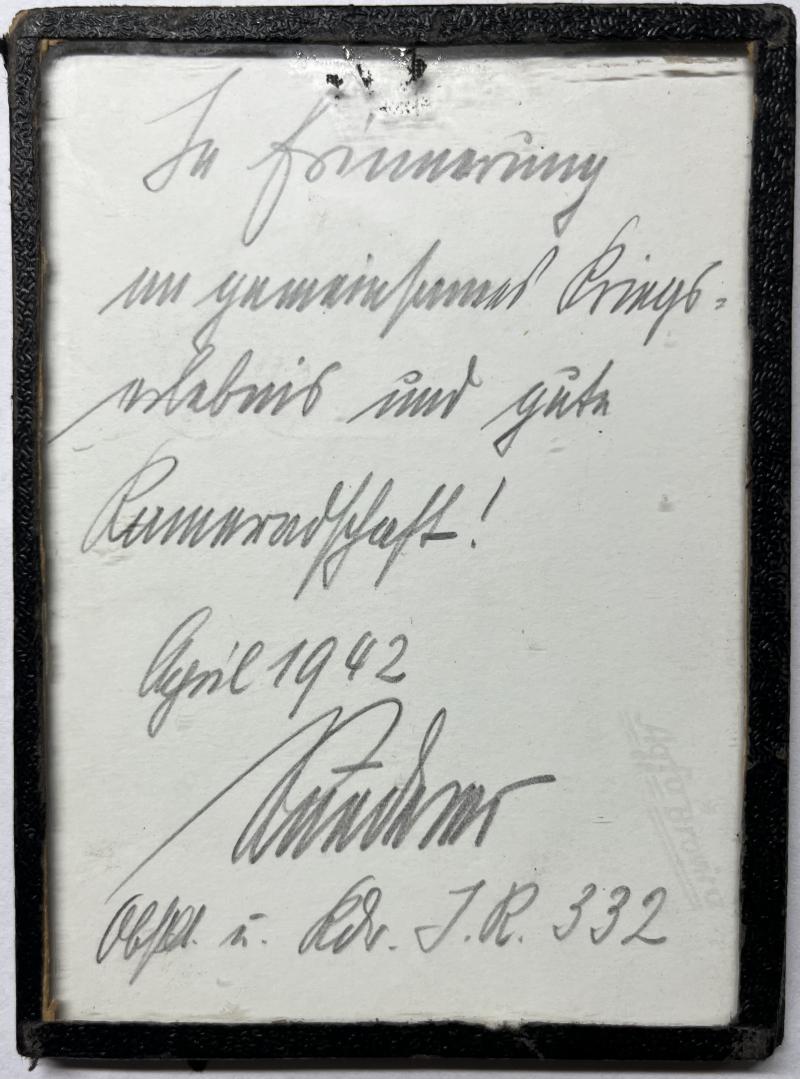 In Erinnerung
an gemeinsames Kriegs=
erlebnis und gute
Kameradschaft!
April 1942
Obstlt. u. Kdr. I.R. 332